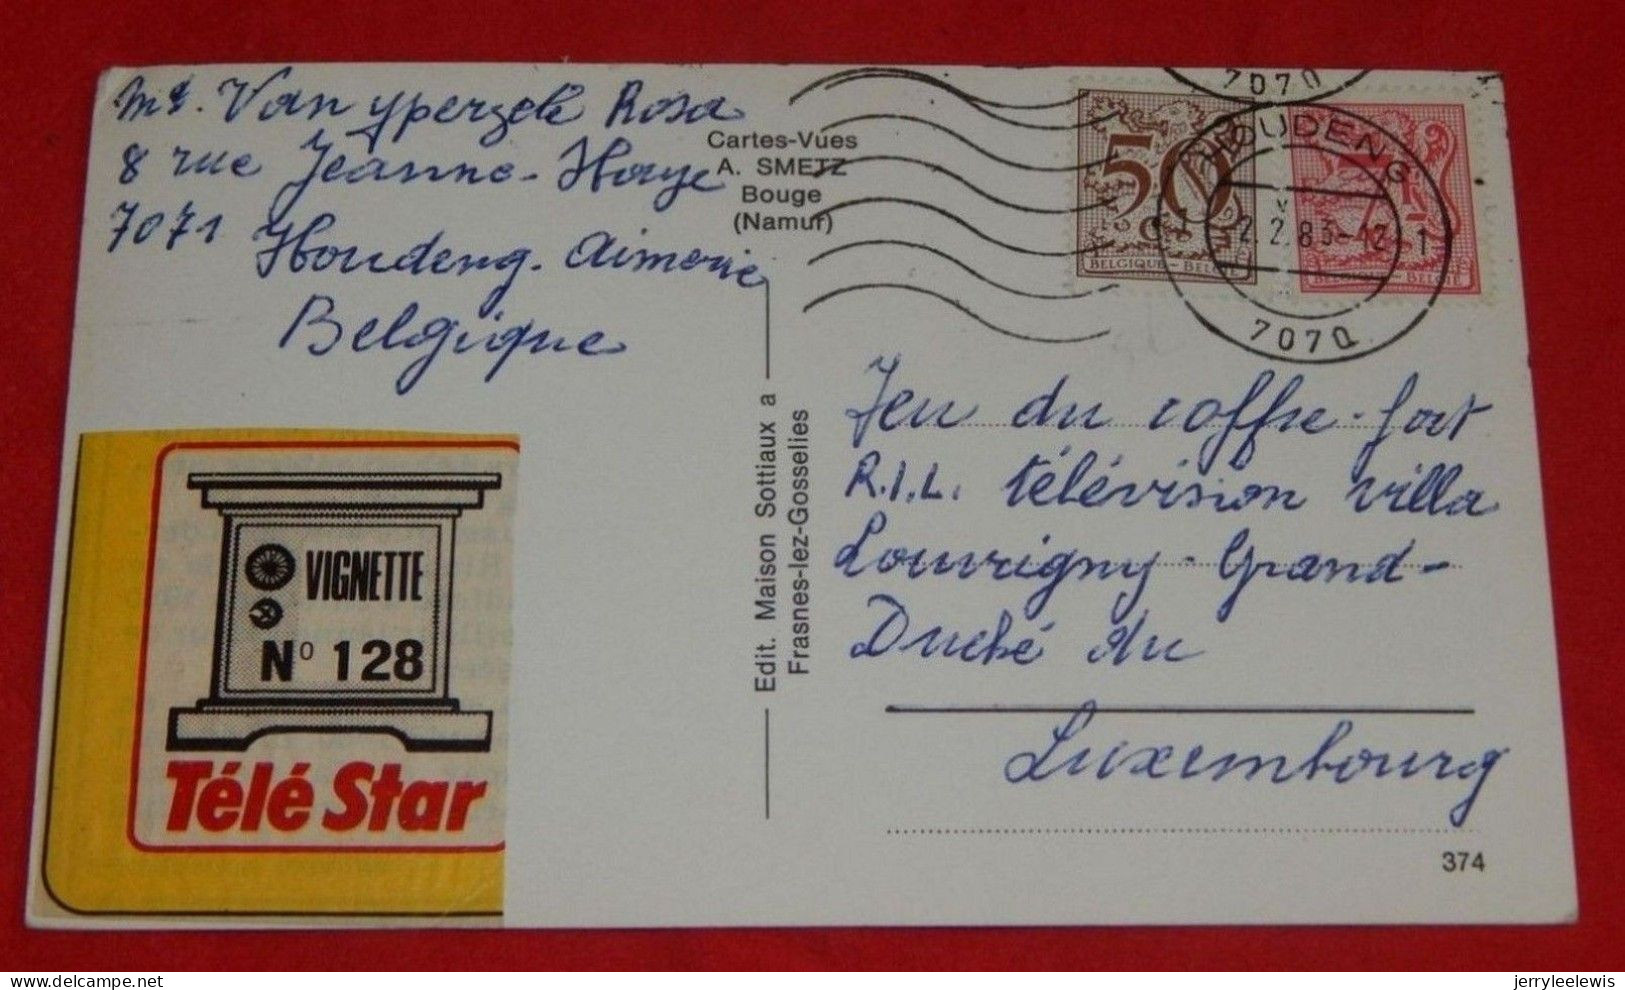 Md. Van yperzele Rosa
8 rue Jeanne-Haye
7071 Houdeng-Aimerie
Belgique
Cartes-Vues
A. SMETZ
Bouge
(Namur)
Edit. Maison Sottiaux a
Frasnes-lez-Gosselies
VIGNETTE
No 128
Télé Star
7070
50
BELGIQUE-BELGIË
HOUDENG
2.2.83-12
1
7070
Jeu du coffre-fort
R.T.L. télévision villa
Louvigny-Grand-
Duché du
Luxembourg
374
delcampe.net
jerryleelewis